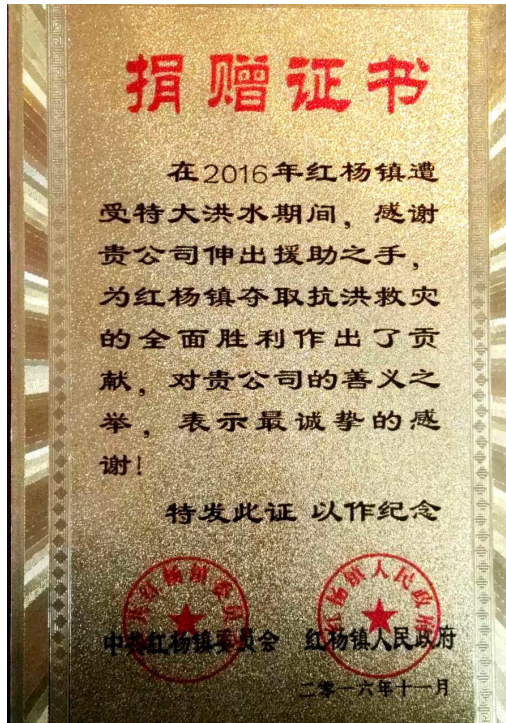 捐赠证书
在2016年红杨镇遭
受特大洪水期间，感谢
贵公司伸出援助之手，
为红杨镇夺取抗洪救灾
的全面胜利作出了贡
献，对贵公司的善义之
举，表示最诚挚的感
谢！
特发此证 以作纪念
中共红杨镇委员会 红杨镇人民政府
二零一六年十一月